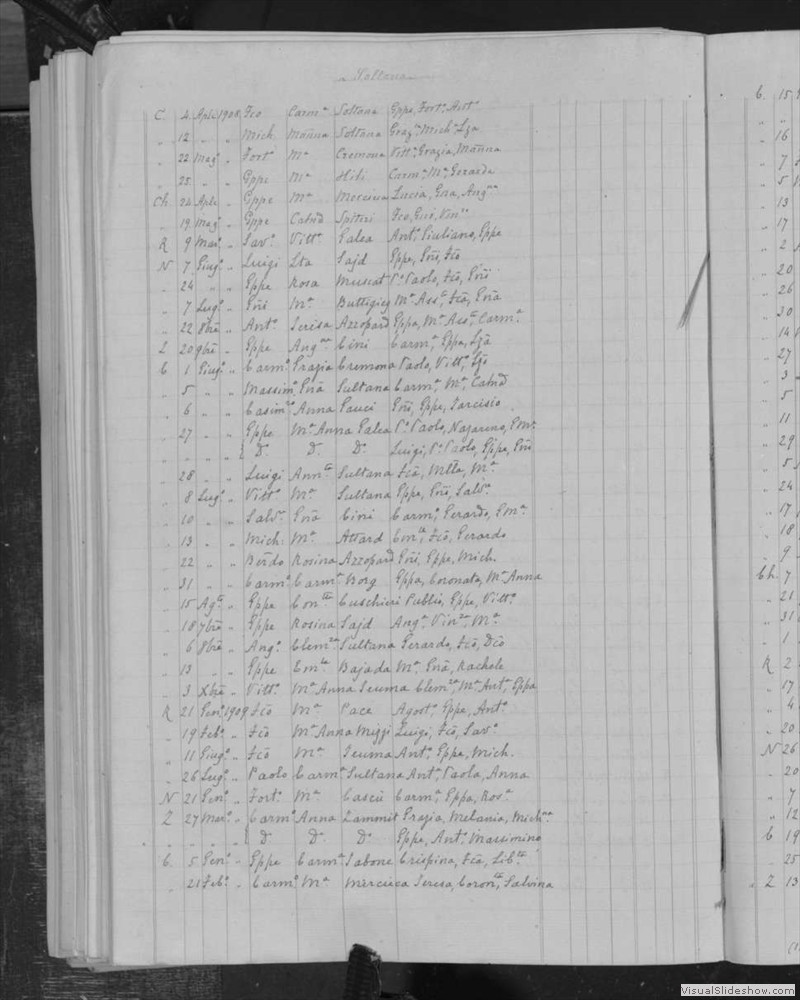 Soltana
C. 4 Aple 1908 Fco Carmª Soltana Gppe, Fortº, Antº
" 12 " " Mich. Manna Soltana Grazª, Michª, Lza
" 22 Magº " Fortº Mª Cremona Vittª, Grazia, Manna
" 25 " " Gppe Mª Hili Carmª, Mª, Gerarda
Ch. 24 Aple " Gppe Mª Mercieca Lucia,
" 19 Magº " Gppe Spiteri Fco,
R 9 Marº " Savº Vittª Galea Antº, Giuliano, Gppe
N 7 Giugº " Luigi Lta Sajd Gppe, Gñi, Fcõ
" 24 " " Gppe Rosa Muscat Pº Paolo, Fcõ, Gñi
" 7 Lugº " Gñi Mª Buttigieg Mª Assª, Fcã, Gñã
" 22 8bre " Antº Teresa Azzopard Gppa, Mª Assª, Carmª
Z 20 9bre " Gppe Angª Cini Carmª, Gppa, Lzã
C 1 Giugº " Carmº Grazia Cremona Paolo, Vittº,
" 5 " " Massimº Gñã Sultana Carmª, Mª,
" 6 " " Casimº Anna Gauci Gñi, Gppe, Tarcisio
" 27 " " Gppe Mª Anna Galea Pº Paolo, Nazareno, Emº
{ D. D. D. Luigi, Pº Paolo, Gppe, Gñi
" 28 " " Luigi Sultana Fcã, Mª
" 8 Lugº " Vittº Mª Sultana Gppe, Gñi, Salvº
" 10 " " Salvº Gñã Cini Carmº, Gerardo, Emª
" 13 " " Mich. Mª Attard Fcõ, Gerardo
" 22 " " Berdo Rosina Azzopard Gñi, Gppe, Mich.
" 31 " " Carmº Carmª Borg Gppa, Coronata, Mª Anna
" 15 Agto " Gppe Cuschieri Publio, Gppe, Vittº
" 18 7bre " Gppe Rosina Sajd Angº, Mª
" 6 8bre " Angº Sultana Gerardo, Fcõ, Dcõ
" 13 " " Gppe Bajada Mª, Gñã, Rachele
" 3 Xbre " Vittº Mª Anna Seuma Mª Antª, Gppa
R 21 Genº 1909 Fcõ Mª Pace Agostº, Gppe, Antº
" 19 Febº " Fcõ Mª Anna Mizzi Luigi, Fcõ, Savº
" 11 Giugº " Fcõ Mª Seuma Antº, Gppe, Mich.
" 26 Lugº " Paolo Carmª Sultana Antª, Paola, Anna
N 21 Genº " Fortº Mª Cascù Carmª, Gppa, Rosª
Z 27 Marº " Carmº Anna Zammit Grazia, Melania, Michª
" " " { D. D. D. Gppe, Antº, Massimino
C. 5 Genº " Gppe Carmª Sabone Crispina, Fcã,
" 21 Febº " Carmº Mª Mercieca Teresa, Salvina
C. 15
"
" 16
" 7
" 5
" 13
" 17
" 2
" 20
" 26
" 30
" 14
" 27
" 3
" 5
" 11
" 29
" 5
" 24
" 17
" 18
" 9
Ch. 7
" 21
" 31
" 1
R 2
" 17
" 4
" 20
N 26
" 20
" 7
" 12
C 19
" 25
Z 13
VisualSlideshow.com